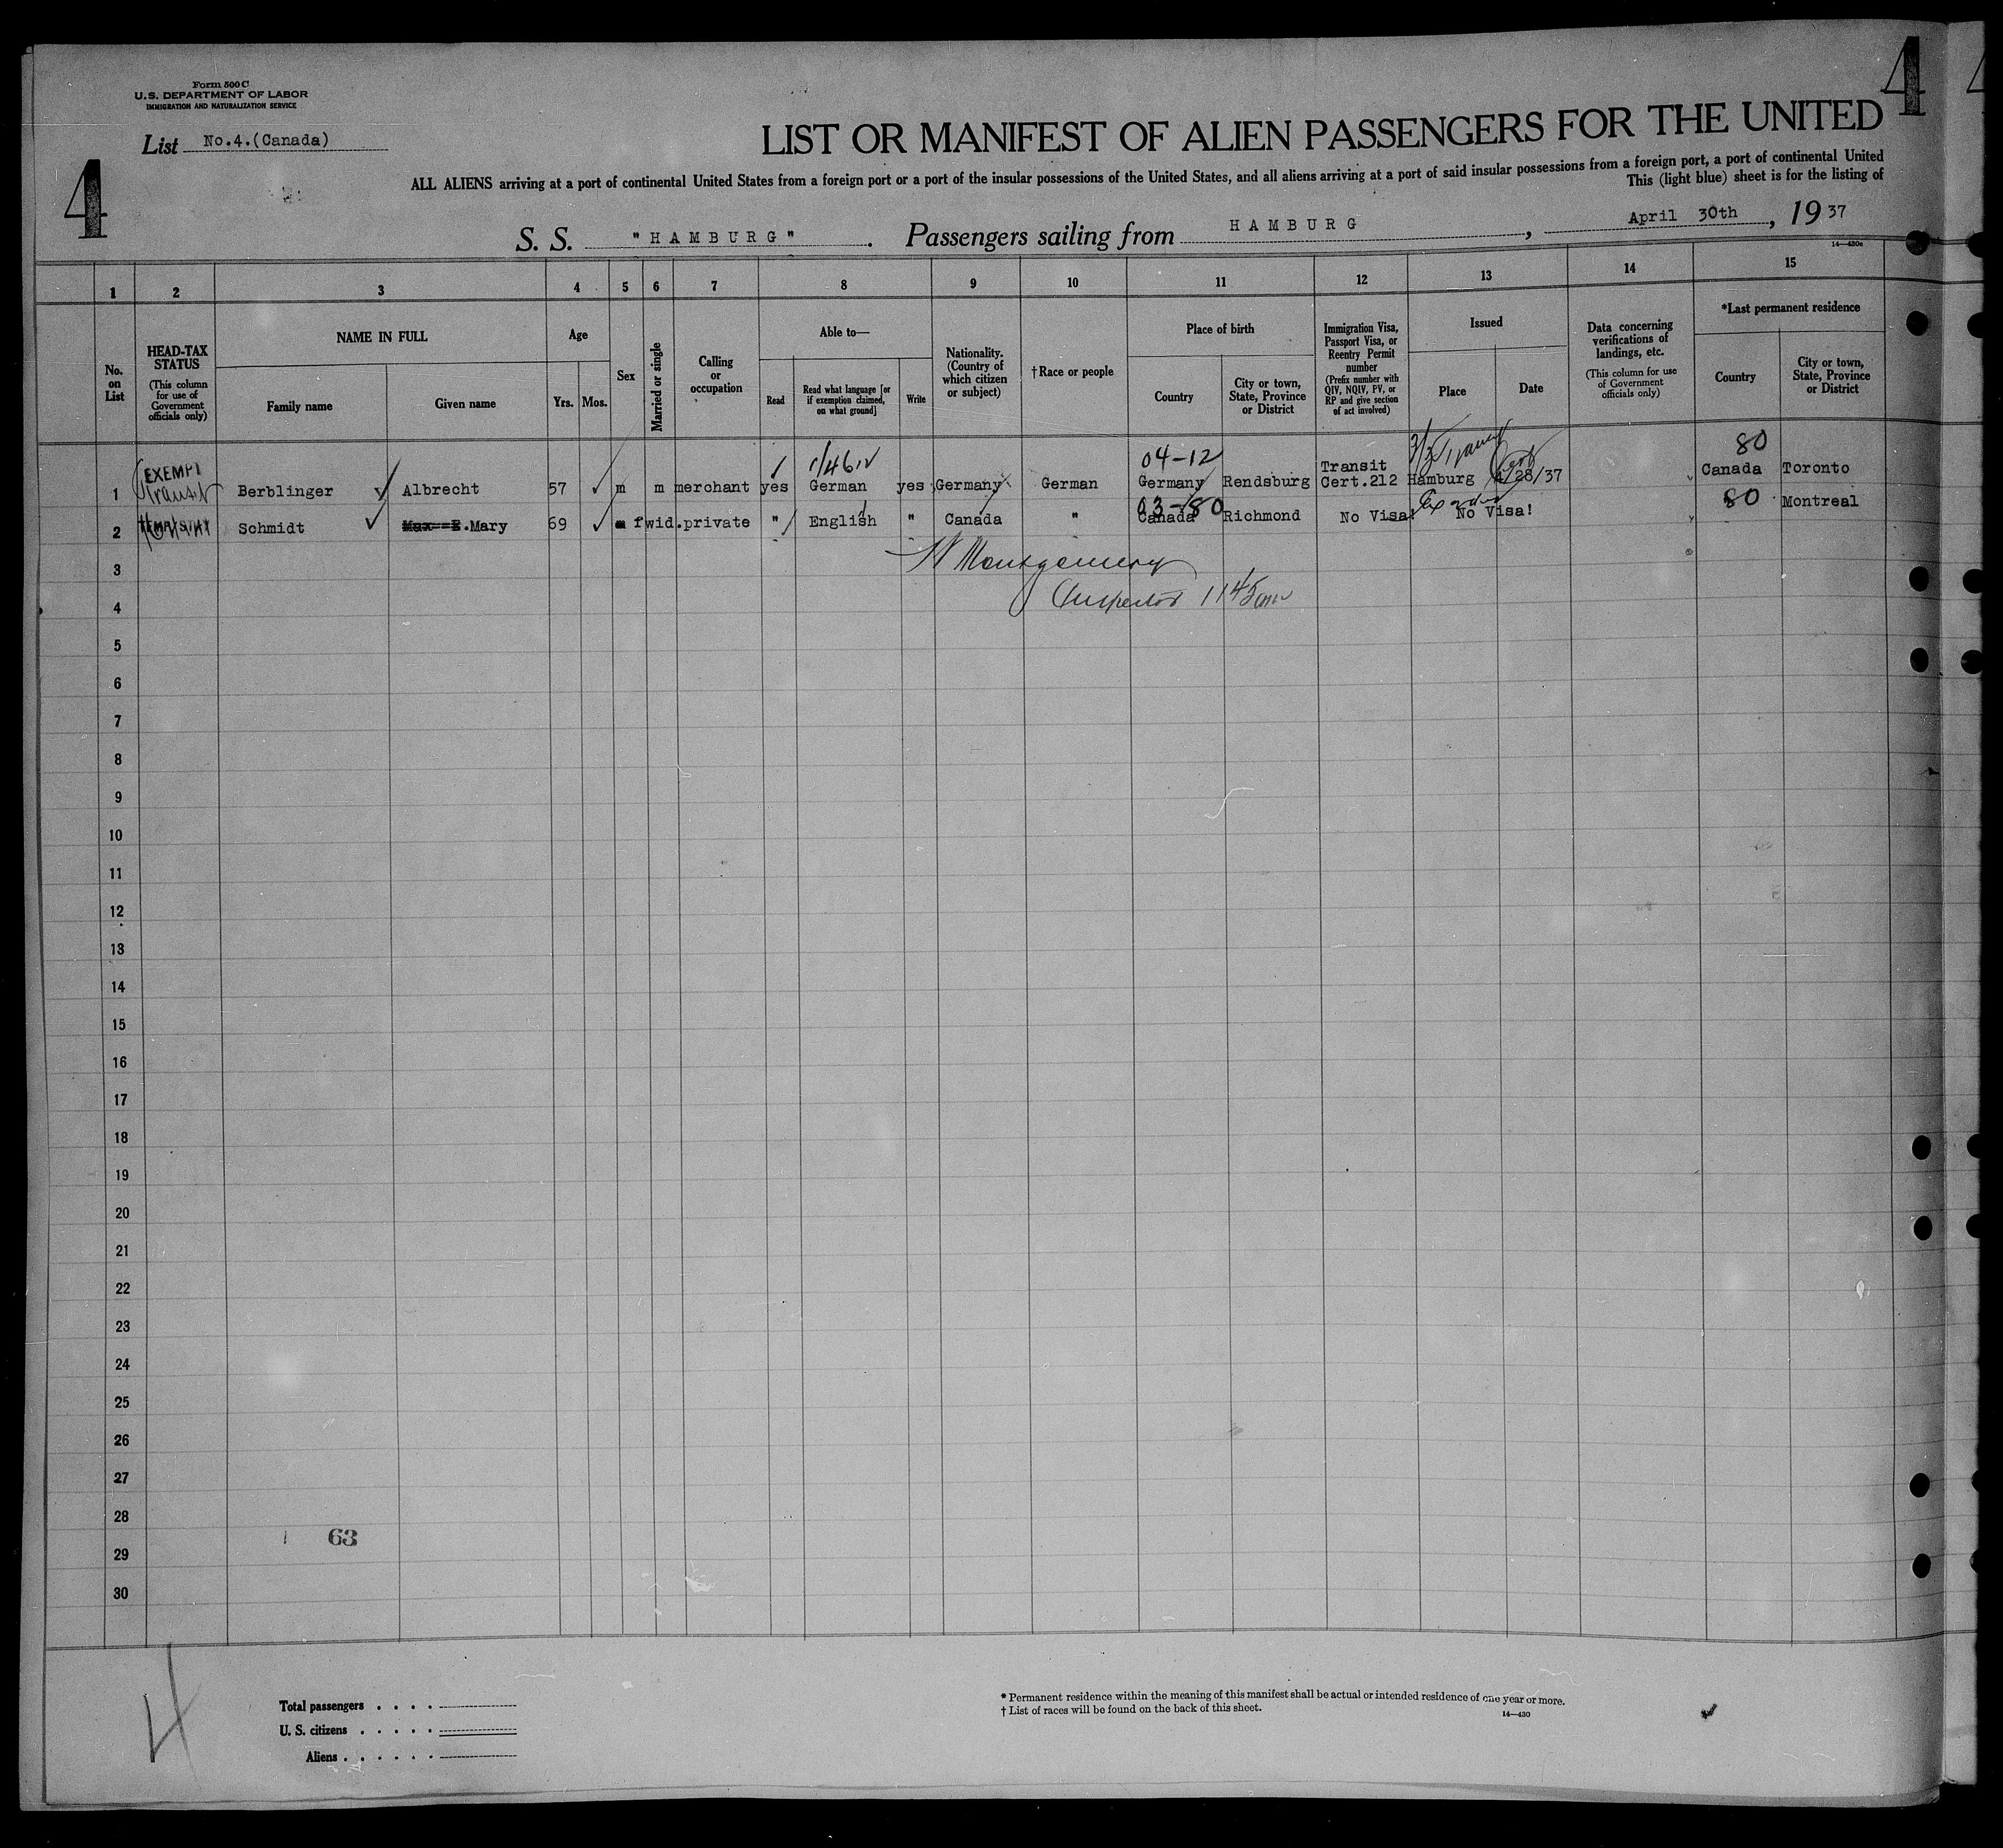 4
Form 500 C
U.S. DEPARTMENT OF LABOR
IMMIGRATION AND NATURALIZATION SERVICE
List No.4.(Canada)
4
LIST OR MANIFEST OF ALIEN PASSENGERS FOR THE UNITED
ALL ALIENS arriving at a port of continental United States from a foreign port or a port of the insular possessions of the United States, and all aliens arriving at a port of said insular possessions from a foreign port, a port of continental United
This (light blue) sheet is for the listing of
S. S. "HAMBURG". Passengers sailing from HAMBURG, April 30th, 1937
14—430a
1 2 3 4 5 6 7 8 9 10 11 12 13 14 15
No. on List
HEAD-TAX STATUS (This column for use of Government officials only)
NAME IN FULL
Family name
Given name
Age
Yrs. Mos.
Sex
Married or single
Calling or occupation
Able to—
Read
Read what language [or if exemption claimed, on what ground]
Write
Nationality. (Country of which citizen or subject)
†Race or people
Place of birth
Country
City or town, State, Province or District
Immigration Visa, Passport Visa, or Reentry Permit number (Prefix number with QIV, NQIV, PV, or RP and give section of act involved)
Issued
Place
Date
Data concerning verifications of landings, etc. (This column for use of Government officials only)
*Last permanent residence
Country
City or town, State, Province or District
04-12 80
1 EXEMPT Transit Berblinger Albrecht 57 m m merchant yes German yes Germany German Germany Rendsburg Transit Cert.212 Hamburg 4/28/37 Canada Toronto
03-80 80
2 Schmidt Mary 69 f wid. private " English " Canada " Canada Richmond No Visa No Visa! Montreal
Montgomery
Inspector 1145
3
4
5
6
7
8
9
10
11
12
13
14
15
16
17
18
19
20
21
22
23
24
25
26
27
28
63
29
30
4
Total passengers . . . .
U. S. citizens . . . . .
Aliens . . . . . .
* Permanent residence within the meaning of this manifest shall be actual or intended residence of one year or more.
† List of races will be found on the back of this sheet.
14—430